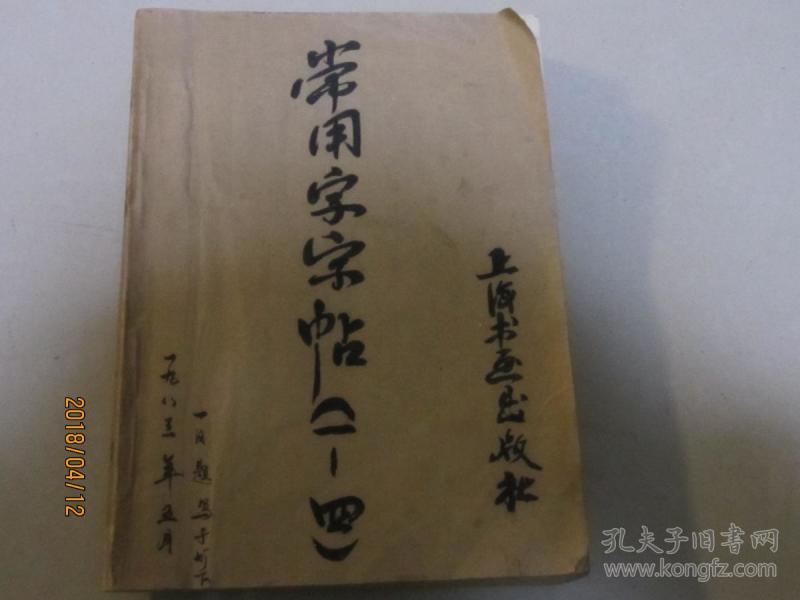 常用字字帖(一-四)
上海书画出版社
一九八三年五月
一日题写于灯下
2018/04/12
孔夫子旧书网
www.kongfz.com